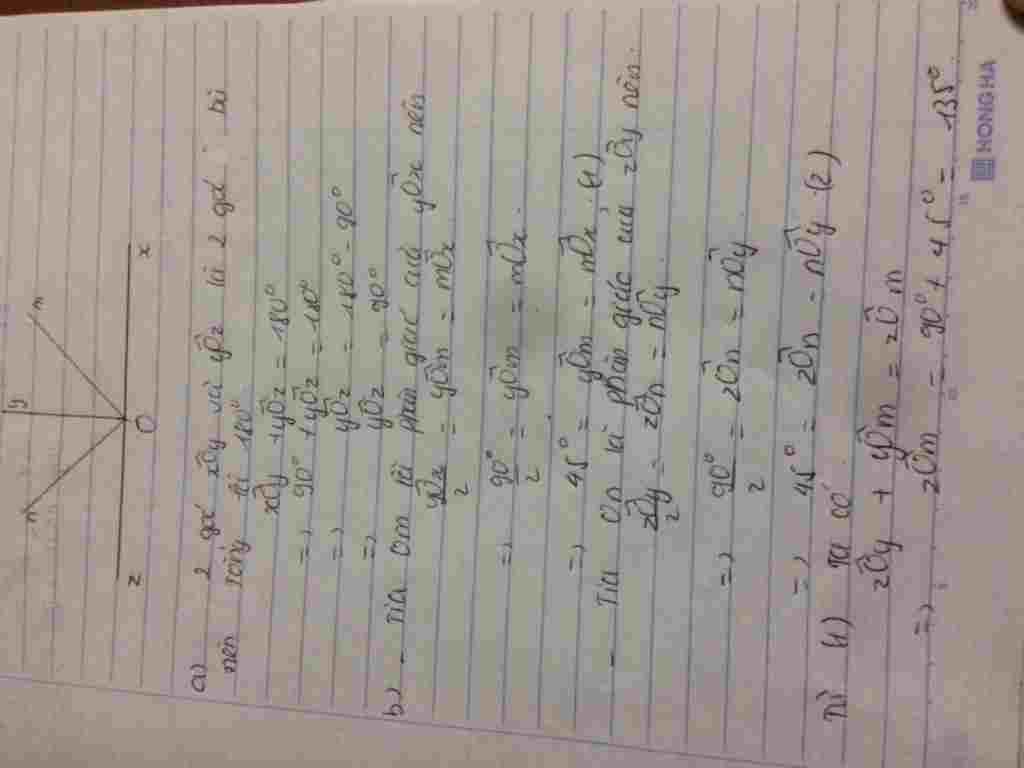 y
m
n
z
O
x
a) 2 góc xÔy và yÔz là 2 góc bù
nên tổng là 180°
xÔy + yÔz = 180°
=> 90° + yÔz = 180°
=> yÔz = 180° - 90°
=> yÔz = 90°
b) - Tia Om là phân giác của yÔx nên
yÔx/2 = yÔm = mÔx
=> 90°/2 = yÔm = mÔx.
=> 45° = yÔm = mÔx. (1)
- Tia On là phân giác của zÔy nên.
zÔy/2 = zÔn = nÔy.
=> 90°/2 = zÔn = nÔy
=> 45° = zÔn = nÔy. (2)
Từ (1) ta có
zÔy + yÔm = zÔm
=> zÔm = 90° + 45° = 135°
HONG HA